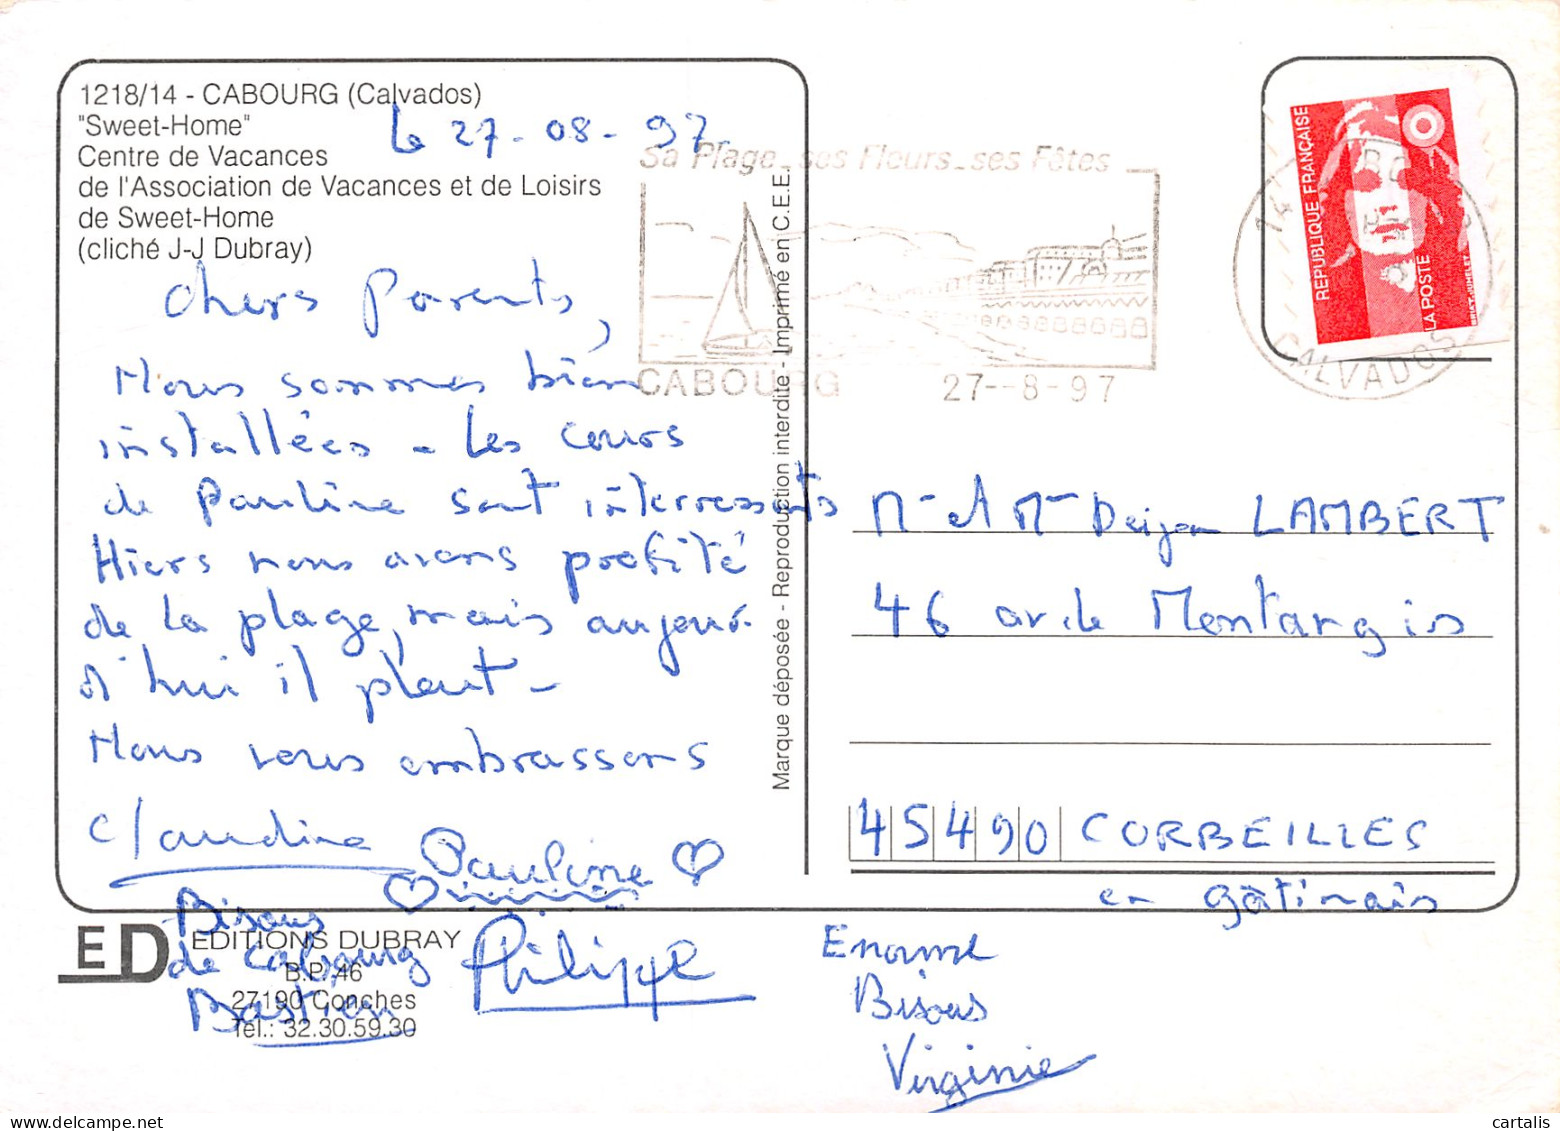 1218/14 - CABOURG (Calvados)
"Sweet-Home"
Centre de Vacances
de l'Association de Vacances et de Loisirs
de Sweet-Home
(cliché J-J Dubray)
Le 27-08-97-
Chers Parents,
Nous sommes bien
installées - Les cours
de Pauline sont interressants
Hiers nous avons profité
de la plage, mais aujour-
d'hui il pleut -
Nous vous embrassons
Claudine
Pauline
Bisous
de Cabourg
Bastien
Philippe
Enorme
Bisous
Virginie
ED
EDITIONS DUBRAY
B.P. 46
27190 Conches
Tél.: 32.30.59.30
Marque déposée - Reproduction interdite - Imprimé en C.E.E.
Sa Plage_ses Fleurs_ses Fêtes
CABOURG 27--8-97
14
CALVADOS
REPUBLIQUE FRANÇAISE
LA POSTE
Mr et Mme LAMBERT
46 av. de Montargis
45490 CORBEILLES
en gâtinais
cartalis